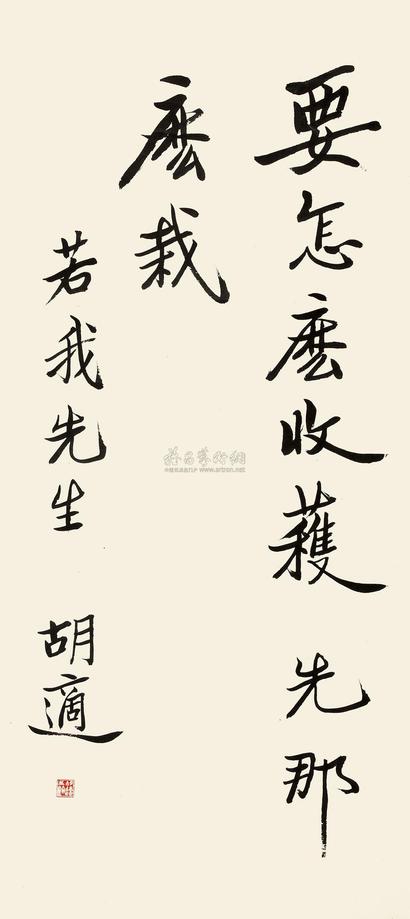 要怎麼收穫 先那
麼栽
若我先生
胡適
www.artron.net